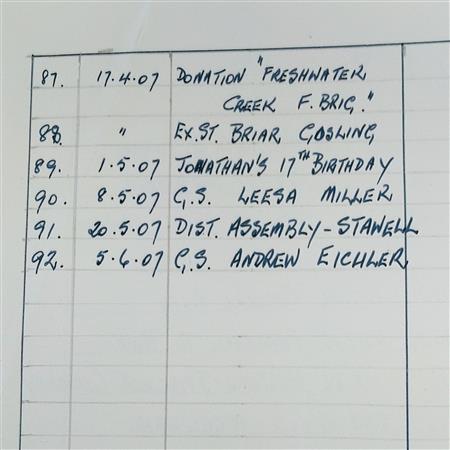 87. 17.4.07 DONATION "FRESHWATER
CREEK F. BRIG."
88. " EX.ST. BRIAR GOSLING
89. 1.5.07 JONATHAN'S 17TH BIRTHDAY
90. 8.5.07 G.S. LEESA MILLER
91. 20.5.07 DIST. ASSEMBLY - STAWELL
92. 5.6.07 G.S. ANDREW EICHLER